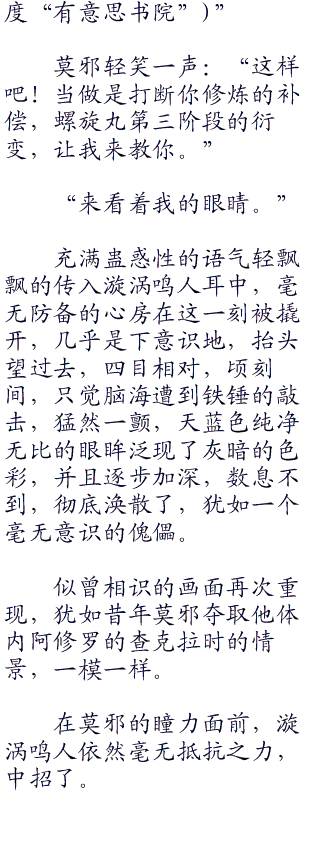 度“有意思书院”)”
莫邪轻笑一声：“这样
吧！当做是打断你修炼的补
偿，螺旋丸第三阶段的衍
变，让我来教你。”
“来看着我的眼睛。”
充满蛊惑性的语气轻飘
飘的传入漩涡鸣人耳中，毫
无防备的心房在这一刻被撬
开，几乎是下意识地，抬头
望过去，四目相对，顷刻
间，只觉脑海遭到铁锤的敲
击，猛然一颤，天蓝色纯净
无比的眼眸泛现了灰暗的色
彩，并且逐步加深，数息不
到，彻底涣散了，犹如一个
毫无意识的傀儡。
似曾相识的画面再次重
现，犹如昔年莫邪夺取他体
内阿修罗的查克拉时的情
景，一模一样。
在莫邪的瞳力面前，漩
涡鸣人依然毫无抵抗之力，
中招了。